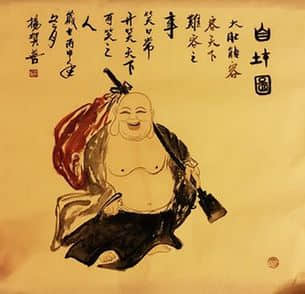 自在圖
大肚能容
容天下
難容之
事
笑口常
开笑天下
可笑之
人